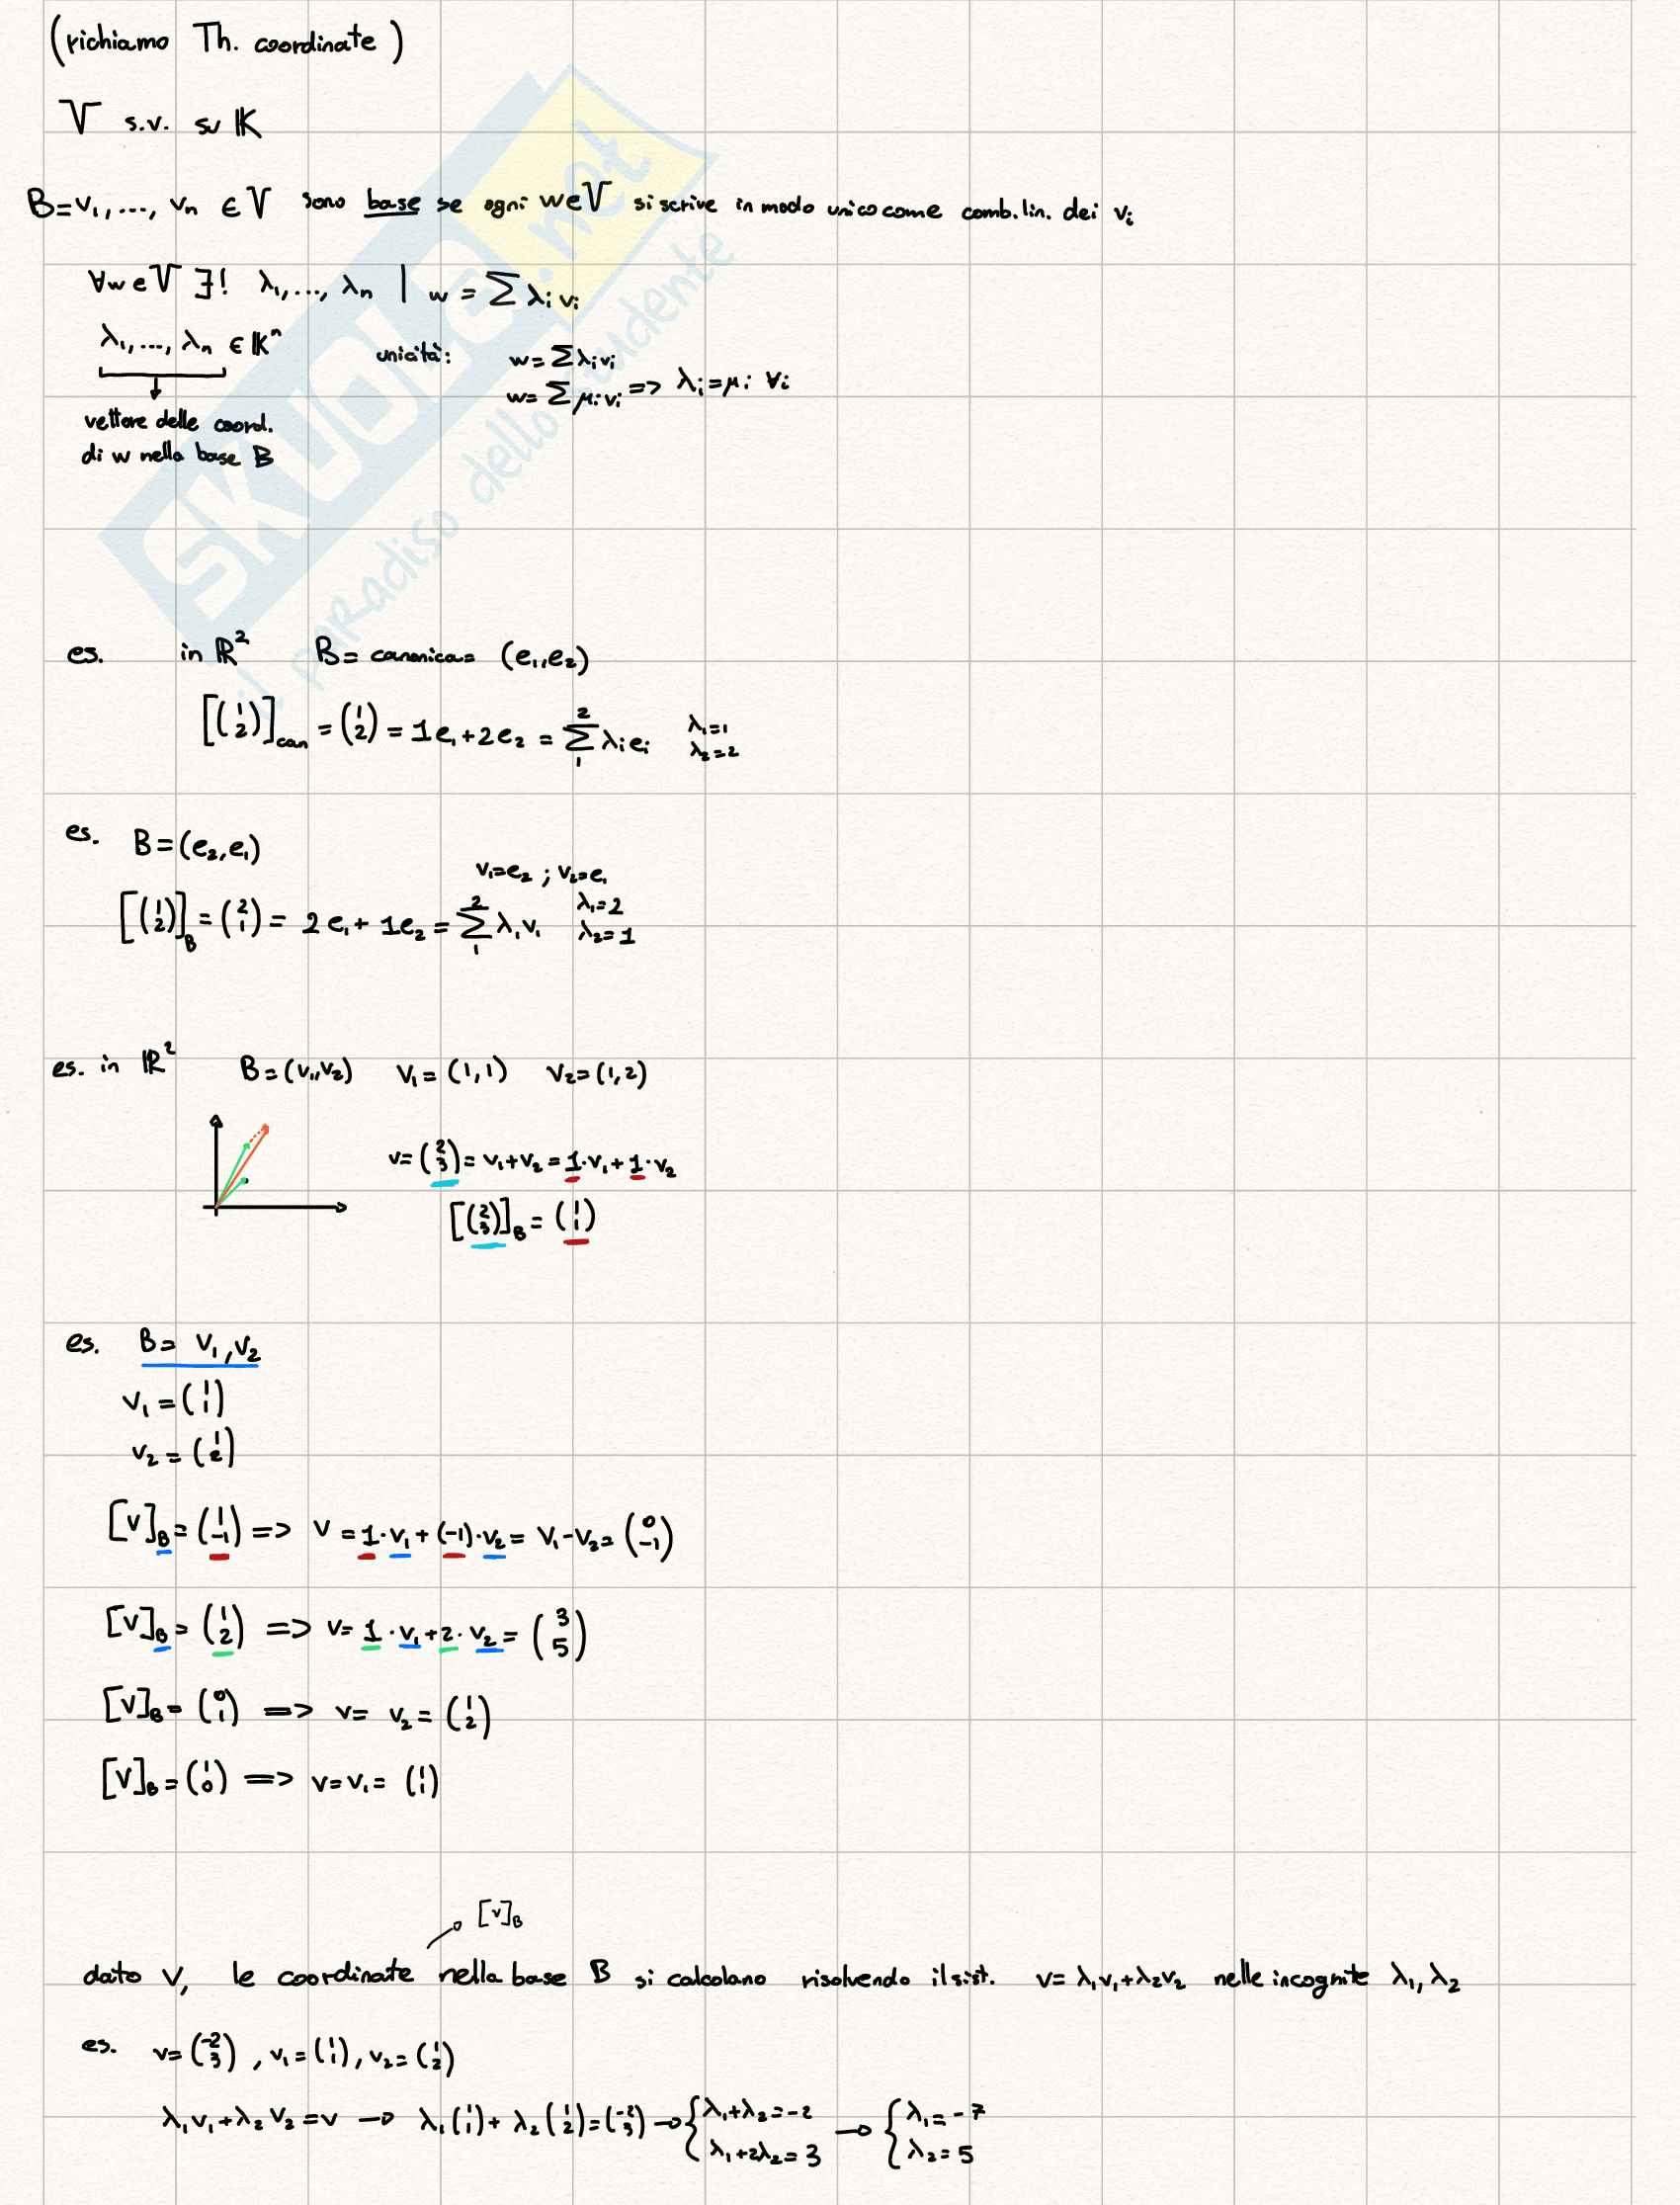 (richiamo Th. coordinate)
V s.v. su K
B=v₁,..., vₙ ∈ V sono base se ogni w∈V si scrive in modo unico come comb. lin. dei vᵢ
∀w∈V ∃! λ₁,..., λₙ | w = ∑ λᵢ vᵢ
λ₁,..., λₙ ∈ Kⁿ
unicità: w=∑λᵢvᵢ
w=∑μᵢvᵢ => λᵢ=μᵢ ∀i
vettore delle coord.
di w nella base B
es. in R² B= canonica= (e₁,e₂)
[(1 2)]can = (1 2) = 1e₁+2e₂ = ∑₁² λᵢeᵢ λ₁=1 λ₂=2
es. B=(e₂,e₁)
v₁=e₂ ; v₂=e₁
[(1 2)]B = (2 1) = 2e₁+1e₂ = ∑₁² λᵢvᵢ λ₁=2 λ₂=1
es. in R² B=(v₁,v₂) v₁=(1,1) v₂=(1,2)
v=(2 3)=v₁+v₂=1·v₁+1·v₂
[(2 3)]B=(1 1)
es. B= v₁,v₂
v₁=(1 1)
v₂=(1 2)
[v]B=(1 -1) => v=1·v₁+(-1)·v₂= v₁-v₂=(0 -1)
[v]B=(1 2) => v=1·v₁+2·v₂=(3 5)
[v]B=(0 1) => v= v₂=(1 2)
[v]B=(1 0) => v=v₁=(1 1)
[v]B
dato v, le coordinate nella base B si calcolano risolvendo il sist. v=λ₁v₁+λ₂v₂ nelle incognite λ₁,λ₂
es. v=(-2 3), v₁=(1 1), v₂=(1 2)
λ₁v₁+λ₂v₂=v → λ₁(1 1)+λ₂(1 2)=(-2 3) → { λ₁+λ₂=-2 λ₁+2λ₂=3 → { λ₁=-7 λ₂=5
SKUOLA.net
il paradiso dello studente